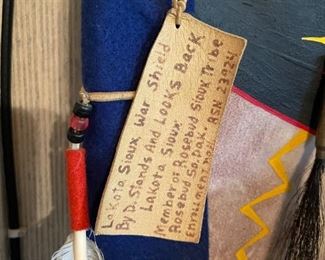 Lakota Sioux War Shield
By D. Stands And Looks Back
Lakota Sioux
Member of Rosebud Sioux Tribe
Rosebud So. Dak.
Enrolment No. RSN 23924